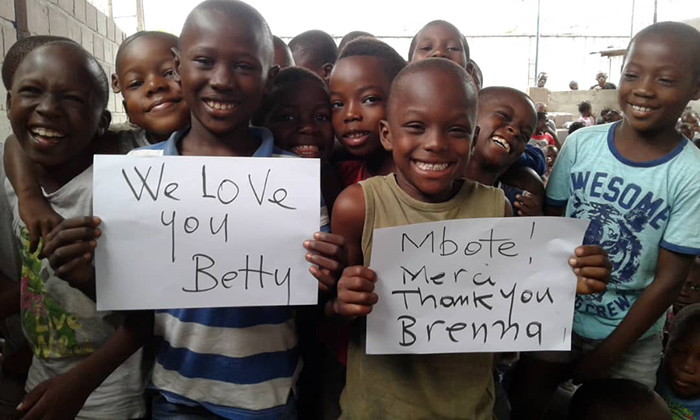 We Love
you
Betty
Mbote!
Merci
Thank you
Brenna!
AWESOME
CREW